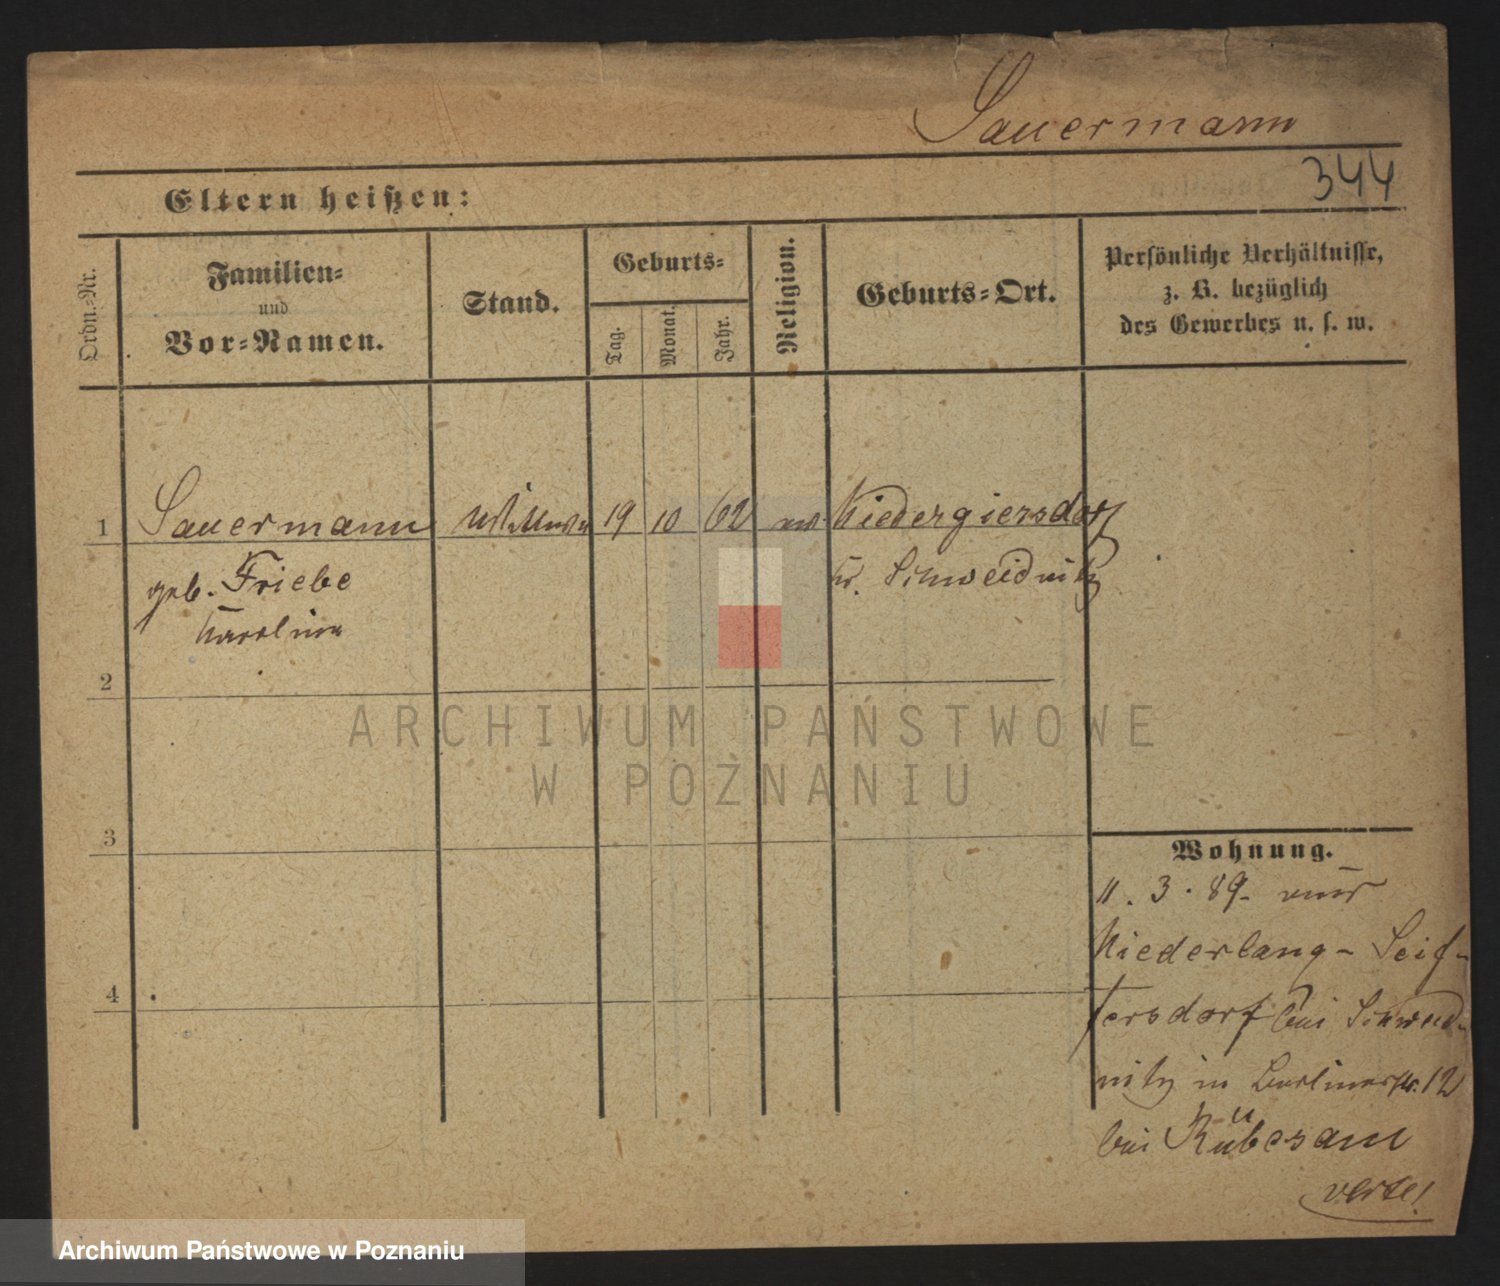 Sauermann
344
Eltern heißen:
Ordn.-Nr.
Familien-
und
Vor-Namen.
Stand.
Geburts-
Tag.
Monat.
Jahr.
Religion.
Geburts-Ort.
Persönliche Verhältnisse,
z. B. bezüglich
des Gewerbes u. s. w.
1 Sauermann Wittwe 19 10 62 Niedergiersdorf
geb. Friebe Kr. Schweidnitz
Karoline
2
3
4
Wohnung.
11. 3. 89.
Niederlang-Seif-
fersdorf bei Schweid-
nitz in Berlinerstr. 12
bei Rübesam
verte!
ARCHIWUM PAŃSTWOWE
W POZNANIU
Archiwum Państwowe w Poznaniu